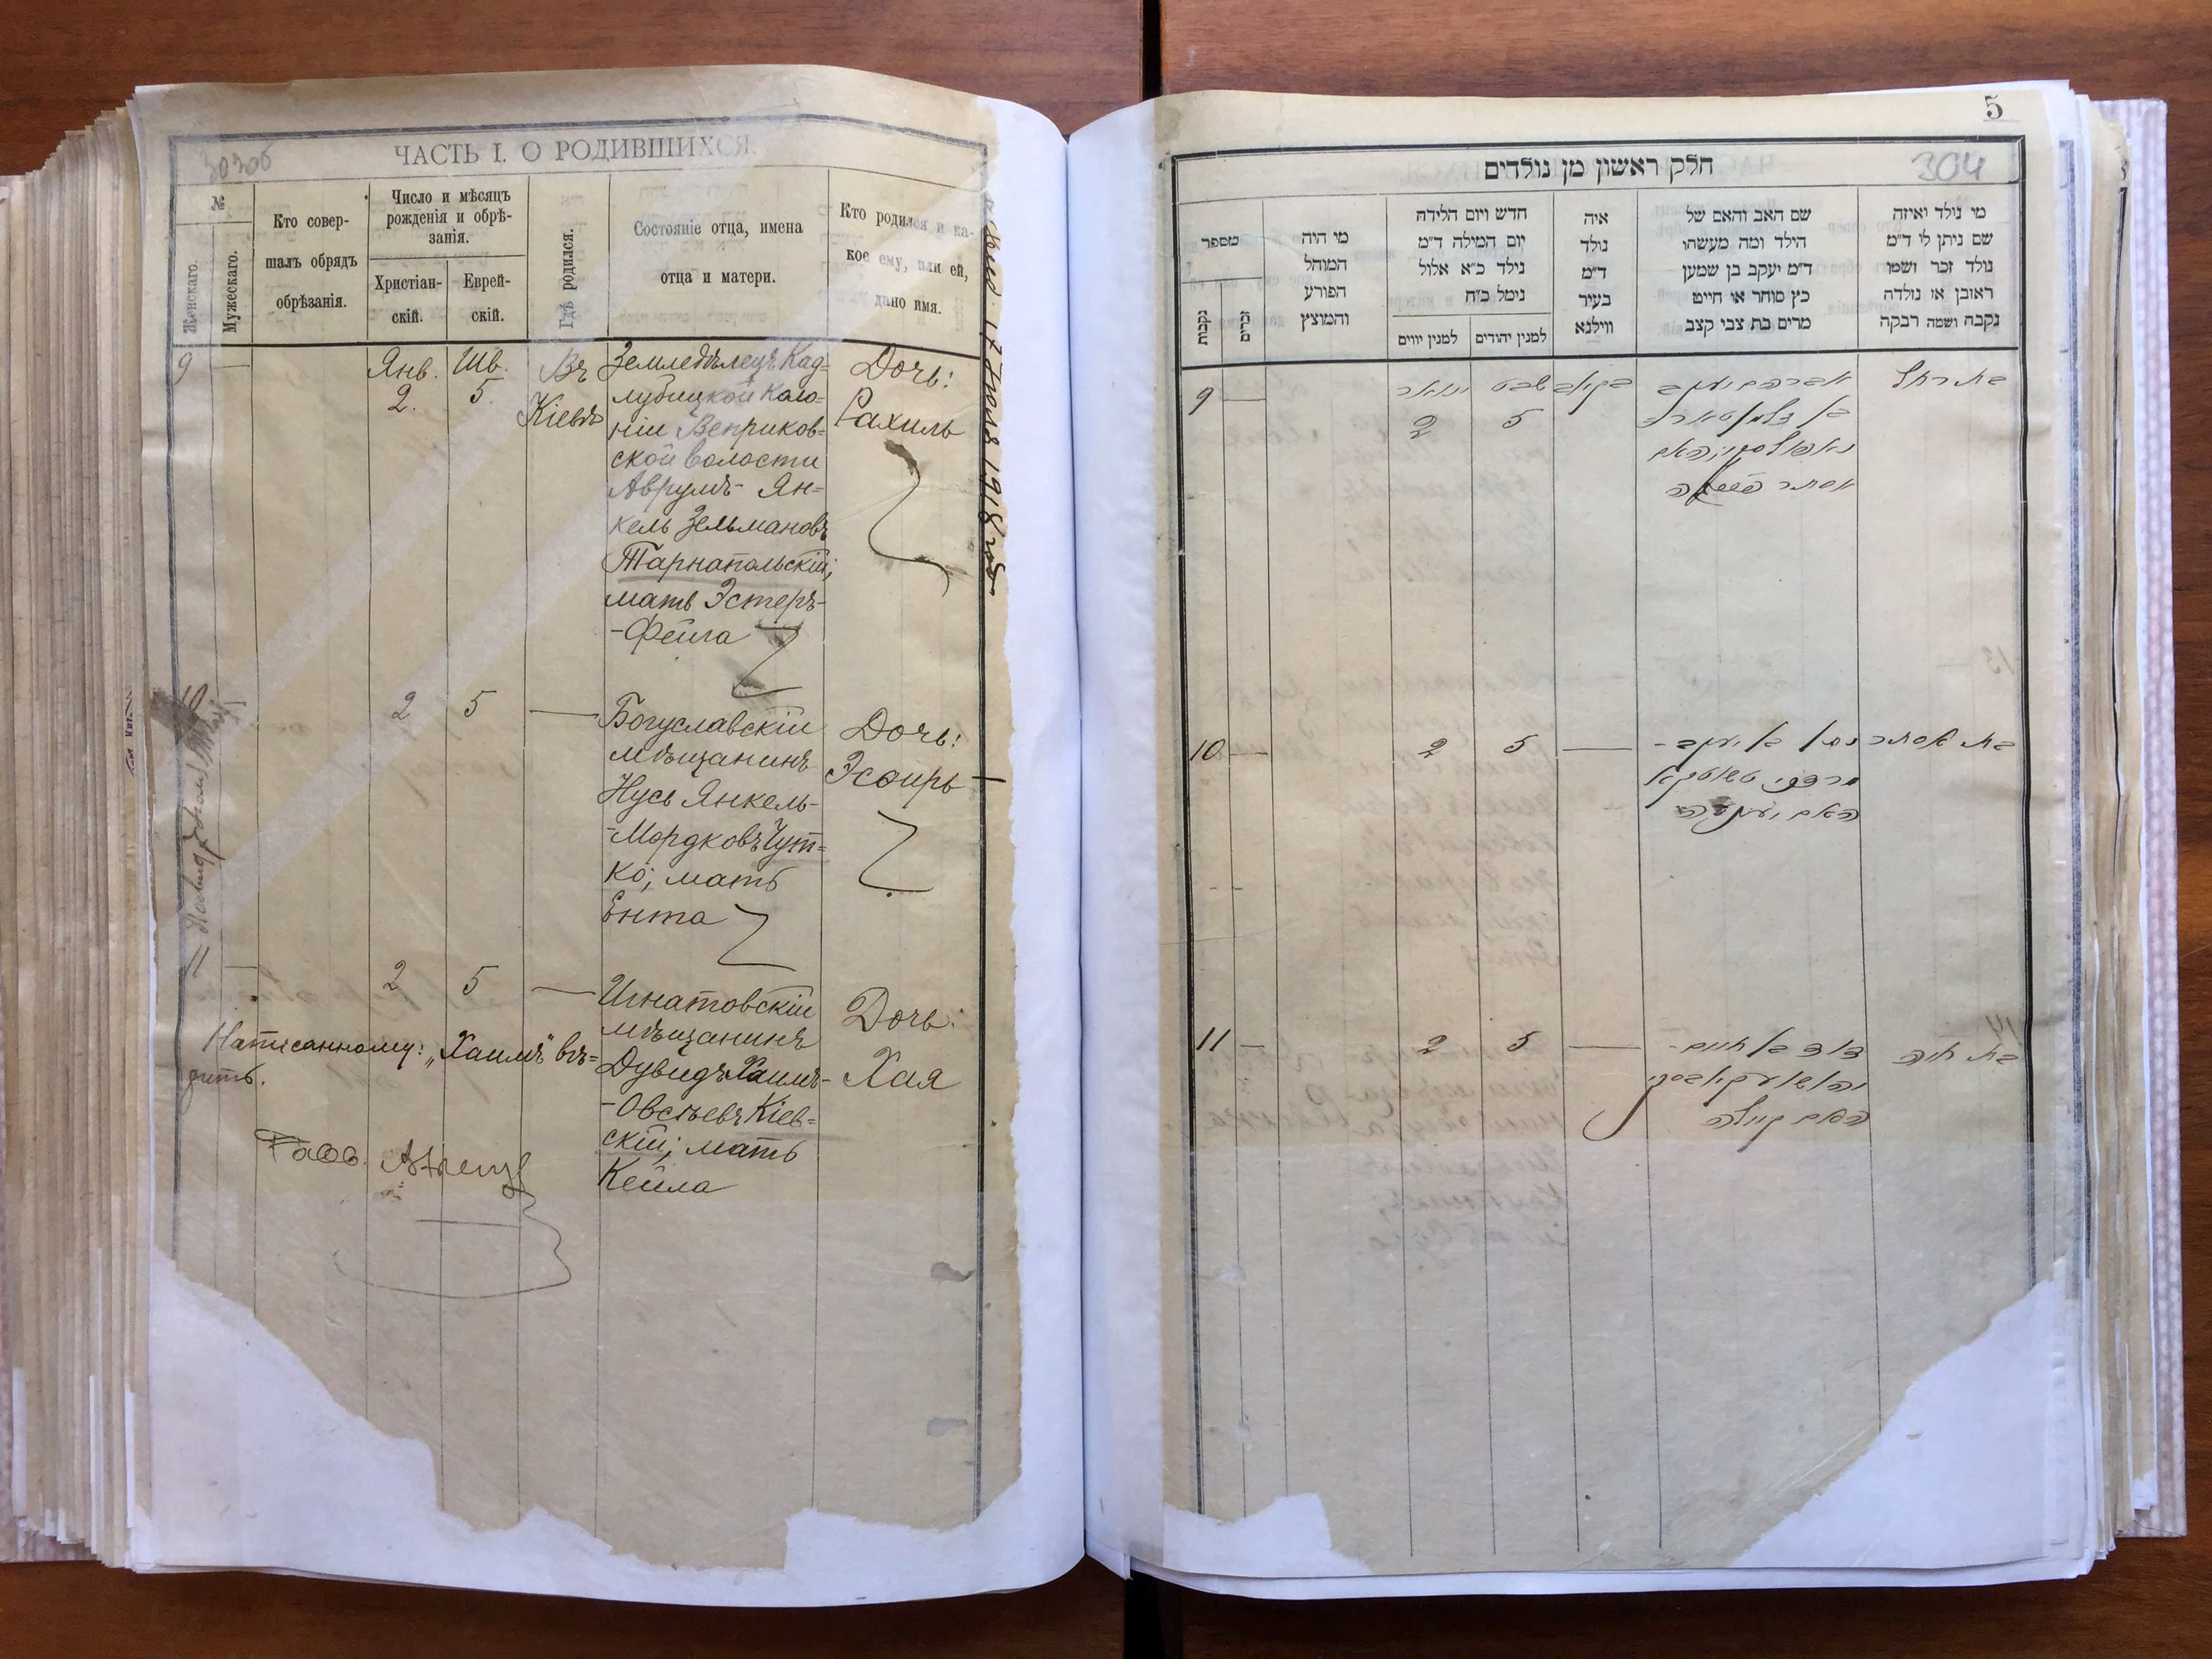 ЧАСТЬ I. О РОДИВШИХСЯ.
№
Женскаго.
Мужескаго.
Кто совер-
шалъ обрядъ
обрѣзанія.
Число и мѣсяцъ
рожденія и обрѣ-
занія.
Христіан-
скій.
Еврей-
скій.
Гдѣ родился.
Состояніе отца, имена
отца и матери.
Кто родился и ка-
кое ему, или ей,
дано имя.
9 — Янв. 2. Шв. 5 Въ Кіевѣ
Земледѣлецъ Кад=
лубицкой коло=
ніи Веприков=
ской волости
Аврумъ- Ян=
кель Зельмановъ
Тарнапольскій;
мать Эстеръ-
-Фейга
Дочь:
Рахиль
10 2 5 —
Богуславскій
мѣщанинъ
Нусь Янкель-
-Мордковъ Чут=
ко; мать
Ента
Дочь:
Эсѳирь
11 — 2 5 —
Игнатовскій
мѣщанинъ
Дувидъ Хаимъ-
-Овсѣевъ Кіев=
скій; мать
Кейла
Дочь:
Хая
Написанному: „Хаимъ" вѣ=
рить.
1918
5
304
חלק ראשון מן נולדים
מספר
נקבות
זכרים
מי היה
המוהל
הפורע
והמוצץ
חדש ויום הלידה
יום המילה ד״מ
נילד כ״א אלול
נימל כ״ח
למנין יווים
למנין יהודים
איה
נולד
ד״מ
בעיר
ווילנא
שם האב והאם של
הילד ומה מעשהו
ד״מ יעקב בן שמען
כץ סוחר או חייט
מרים בת צבי קצב
מי נולד ואיזה
שם ניתן לו ד״מ
נולד זכר ושמו
ראובן או נולדה
נקבה ושמה רבקה
9 — ינואר 2 שבט 5
אברהם יעקב
האם
אסתר
בת רחל
10 — 2 5 —
האם יענטה
בת אסתר
11 — 2 5 —
דוד בן חיים -
האם קיילה
בת חיה